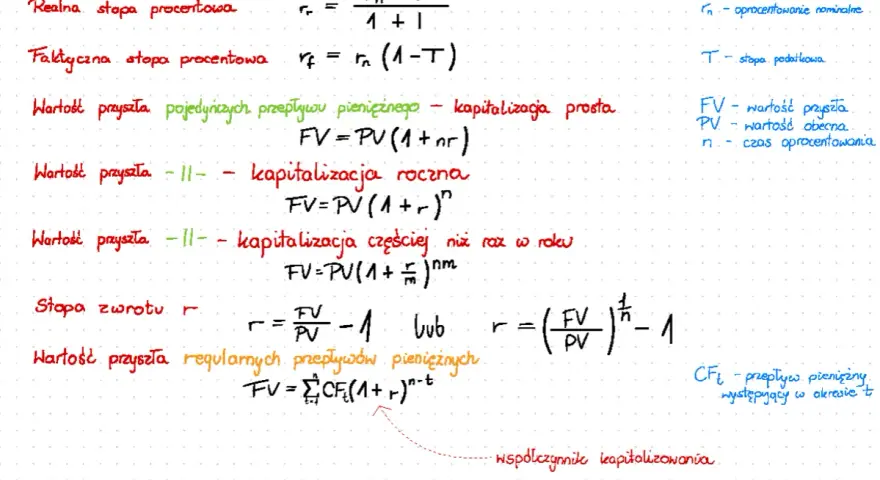 Realna stopa procentowa r_r = 1 + I
r_n - oprocentowanie nominalne
Faktyczna stopa procentowa r_f = r_n (1-T)
T - stopa podatkowa
Wartość przyszła pojedyńczych przepływu pieniężnego - kapitalizacja prosta
FV = PV(1+nr)
FV - wartość przyszła
PV - wartość obecna
n - czas oprocentowania
Wartość przyszła -||- - kapitalizacja roczna
FV = PV(1+r)^n
Wartość przyszła -||- - kapitalizacja częściej niż raz w roku
FV = PV(1 + r/m)^nm
Stopa zwrotu r
r = FV/PV - 1 lub r = (FV/PV)^1/n - 1
Wartość przyszła regularnych przepływów pieniężnych
FV = Σ CF_t(1+r)^n-t
CF_t - przepływ pieniężny
występujący w okresie t
współczynnik kapitalizowania